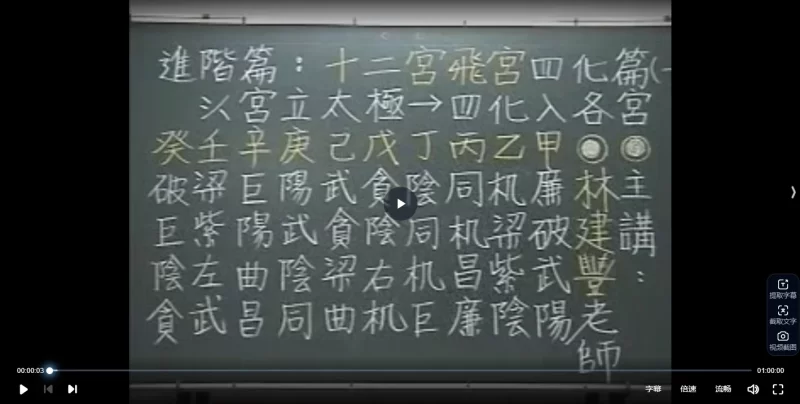 進階篇：十二宮飛宮四化篇(一
以宮立太極→四化入各宮
癸壬辛庚己戊丁丙乙甲
破梁巨陽武貪陰同机廉林主
巨紫陽武貪陰同机梁破建講
陰左曲陰梁右机昌紫武豐：
貪武昌同曲机巨廉陰陽老
師
提取字幕
截取文字
视频截图
00:00:03
01:00:00
字幕
倍速
流畅